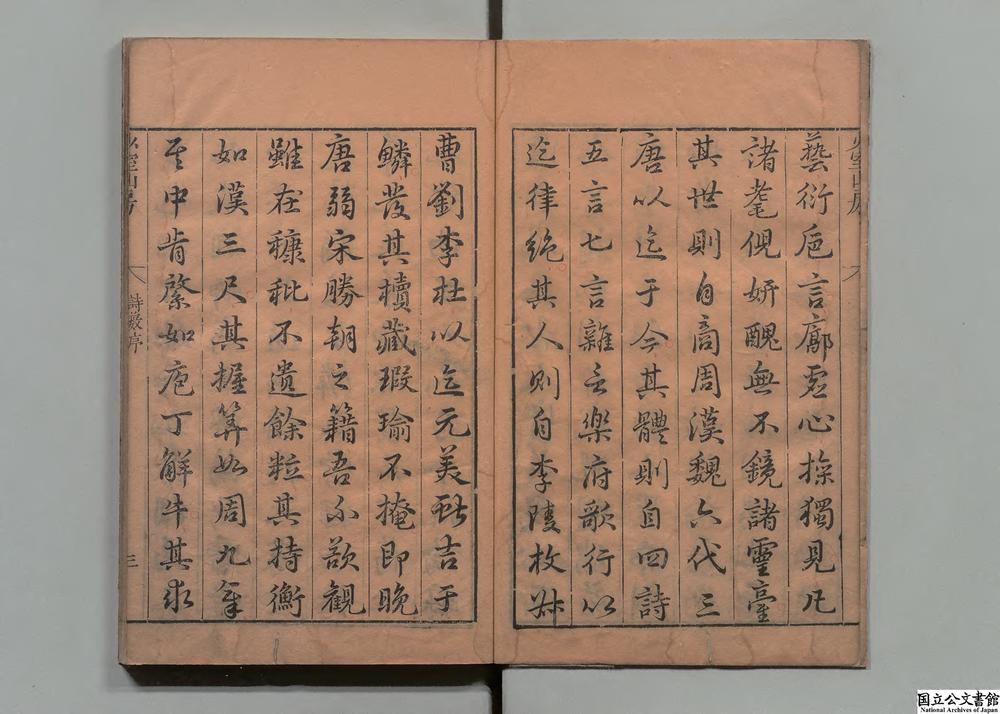 藝衍巵言廓虛心採獨見凡
諸耄倪妍醜無不鏡諸靈臺
其世則自商周漢魏六代三
唐以迄于今其體則自四詩
五言七言雜言樂府歌行以
迄律絶其人則自李陵枚叔
曹劉李杜以迄元美獻吉于
鱗發其櫝藏瑕瑜不掩即晚
唐弱宋勝朝之籍吾不欲觀
雖在糠粃不遺餘粒其持衡
如漢三尺其握筭如周九章
其中肯綮如庖丁解牛其求
少室山房
詩藪序
三
国立公文書館
National Archives of Japan